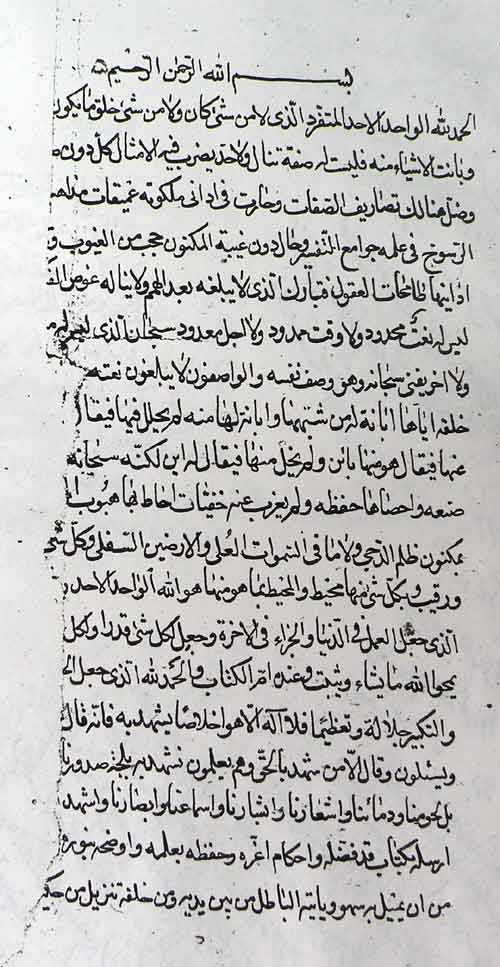 بسم الله الرحمن الرحيم
الحمد لله الواحد الاحد المتفرد الذى لا من شئ كان ولا من شئ خلق ما يكون
وبانت الاشياء منه فليست له صفة تنال ولا حد يضرب فيه الامثال كل دون
وضل هنالك تصاريف الصفات وحارت فى ادانى ملكوته عميقات مذاهب
الرسوخ فى علمه جوامع التفسير وحال دون غيبة المكنون حجب من الغيوب و
ادانيها طامحات العقول فتبارك الذى لا يبلغه بعد الهمم ولا يناله غوص
ليس له نعت محدود ولا وقت ممدود ولا اجل معدود سبحان الذى ليس له
ولا اخر يفنى سبحانه وهو وصف نفسه والواصفون لا يبلغون نعته
خلقه اياها ابانة له من شبهها وابانة لها منه لم يحلل فيها فيقال
عنها فيقال هو منها بائن ولم يخل منها فيقال له اين لكنه سبحانه
صنعه واحصاها حفظه ولم يعزب عنه خفيات
بمكنون ظلم الدجى ولا ما فى السموات العلى والارضين السفلى وكل شئ
ورقيب وبكل شئ منها محيط والمحيط بما هو منها هو الله الواحد الاحد
الذى جعل العمل فى الدنيا والجزاء فى الاخرة وجعل لكل شئ قدرا ولكل
يمحوا الله ما يشاء ويثبت وعنده ام الكتاب والحمد لله الذى جعل
والتكبير جلالة وتعظيما فلا اله الا هو اخلاصا يشهد به فانه قال
ويسئلون وقال الا من شهد بالحق وهم يعلمون نشهد به صدورنا
بل لحومنا ودمائنا واشعارنا وابشارنا واسماعنا وابصارنا واشهد
ارسله بكتاب قد فصله واحكام اعزه وحفظه بعلمه واوضحه بنوره
من ان يميل بسهو وياتيه الباطل من بين يديه ومن خلفه تنزيل من حكيم